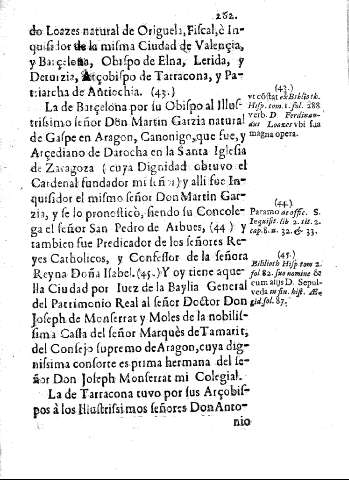 262.
do Loazes natural de Origuela, Fiscal, è In-
quisidor de la misma Ciudad de Valencia,
y Barçelona, Obispo de Elna, Lerida, y
Arçobispo de Tarracona, y Pa-
triarcha de Antiochia. (43.)
La de Barçelona por su Obispo al Illus-
trissimo señor Don Martin Garzia natural
de Gaspe en Aragon, Canonigo, que fue, y
Arçediano de Darocha en la Santa Iglesia
de Zaragoza (cuya Dignidad obtuvo el
Cardenal fundador mi señor) y alli fue In-
quisidor el mismo señor Don Martin Gar-
zia, y se lo pronosticò, siendo su Concole-
ga el señor San Pedro de Arbues, (44) y
tambien fue Predicador de los señores Re-
yes Catholicos, y Confessor de la señora
Reyna Doña Isabel. (45.) Y oy tiene aque-
lla Ciudad por Iuez de la Baylia General
del Patrimonio Real al señor Doctor Don
Joseph de Monserrat y Moles de la nobilis-
sima Casa del señor Marquès de Tamarit,
del Consejo supremo de Aragon, cuya dig-
nissima consorte es prima hermana del se-
ñor Don Joseph Monserrat mi Colegial.
La de Tarracona tuvo por sus Arçobis-
pos à los Illustrissimos señores Don Anto-
nio
(43.)
vt cõstat ex Biblioth.
Hisp. tom. 1. fol. 288
verb. D. Ferdinan-
dus Loazes vbi sua
magna opera.
(44.)
Paramo de offic. S.
Inquisit. lib. 2. tit. 2.
cap. 8. n. 32. & 33.
(45.)
Biblioth Hisp tom 2.
fol 82. suo nomine &
cum aliis D. Sepul-
veda in fin. hist.
gid. fol. 87.